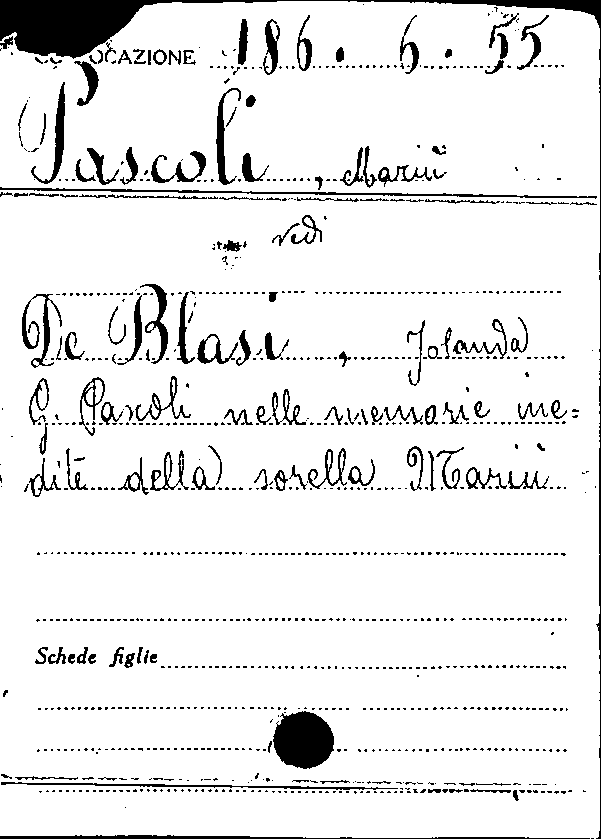 COLLOCAZIONE 186. 6. 55
Pascoli, Mariù
vedi
De Blasi, Jolanda
G. Pascoli nelle memorie ine=
dite della sorella Mariù
Schede figlie